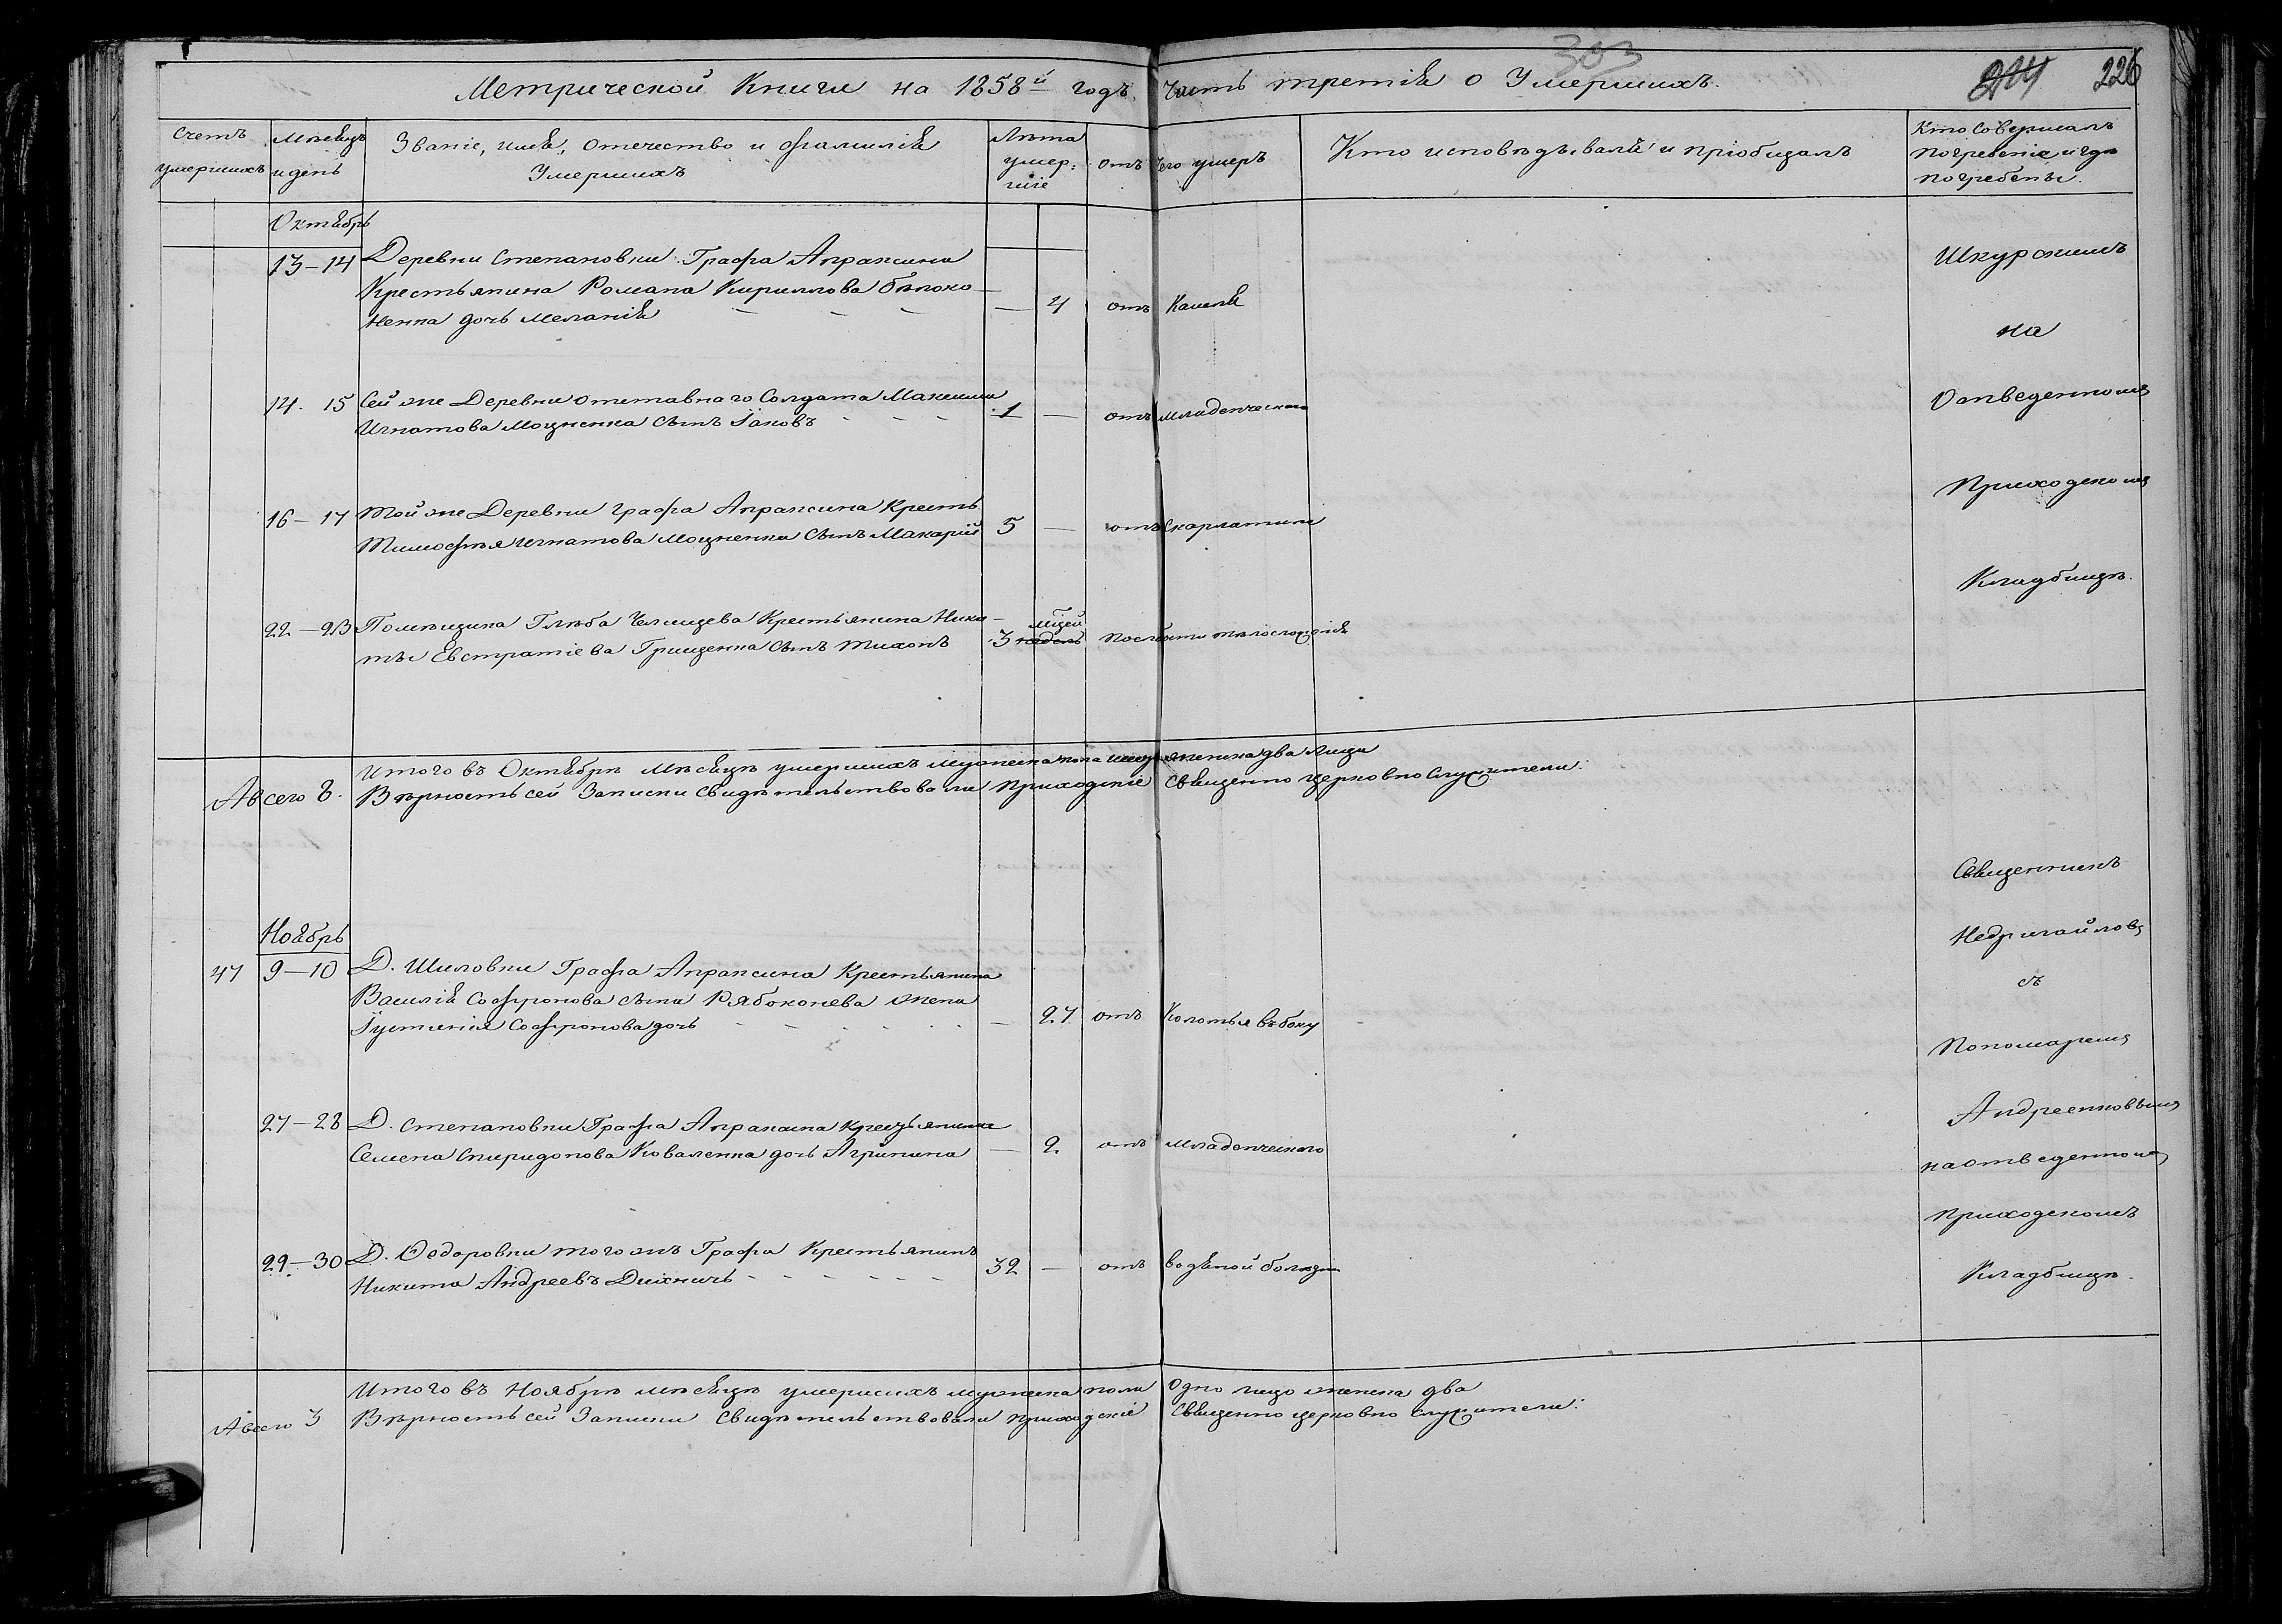 303
Метрической Книги на 1858й годъ, Часть третія о Умершихъ.
214 226
Счетъ умершихъ
Мѣсяцъ и день
Званіе, имя, отечество и фамилія Умершихъ
Лѣта умер: шіе
отъ чего умеръ
Кто исповѣдывалъ и пріобщалъ
Кто Совершалъ погребеніе и гдѣ погребены.
Октябрь
13–14 Деревни Степановки Графа Апраксина
Крестьянина Романа Кириллова Бѣлоко
ненка дочь Меланія — 4 отъ Кашля
14. 15 Сей же Деревни отставнаго Солдата Максима
Игнатова Моцненка Сынъ Іаковъ 1 — отъ младенческаго
16–17 Той же Деревни Графа Апраксина Кресть.
Тимофѣя Игнатова Моцненка Сынъ Макарій 5 — отъ Скарлатины
22–23 Помѣщика Глѣба Челищева Крестьянина Ники–
ты Евстратіева Грищенка Сынъ Тихонъ 3 недель мцей
Шкуркинъ
на
Отведенномъ
Приходскомъ
Кладбищѣ.
Итого въ Октябрѣ Мѣсяцѣ умершихъ мужеска пола женска два лица
А всего 8. Вѣрность сей Записки Свидѣтельствовали Приходскіе Священно церковно Служители:
Ноябрь
47 9–10 Д. Шиловки Графа Апраксина Крестьянина
Василія Софронова сына Рябоконева жена
Іустинія Софронова дочь — 27 отъ Колотья въ боку
27–28 Д. Степановки Графа Апраксина Крестьянина
Семена Спиридонова Коваленка дочь Агрипина — 2. отъ младенческаго
29–30 Д. Ѳедоровки того жъ Графа Крестьянинъ
Никита Андреевъ Дихничь 32 — отъ водяной болѣзни
Священникъ
Недригайловъ
съ
Пономаремъ
Андреенковымъ
на отведенномъ
Приходскомъ
Кладбищѣ.
Итого въ Ноябрѣ мѣсяцѣ умершихъ мужеска пола одно лицо женска два
А всего 3 Вѣрность сей Записки Свидѣтельствовали приходскіе Священно церковно Служители: